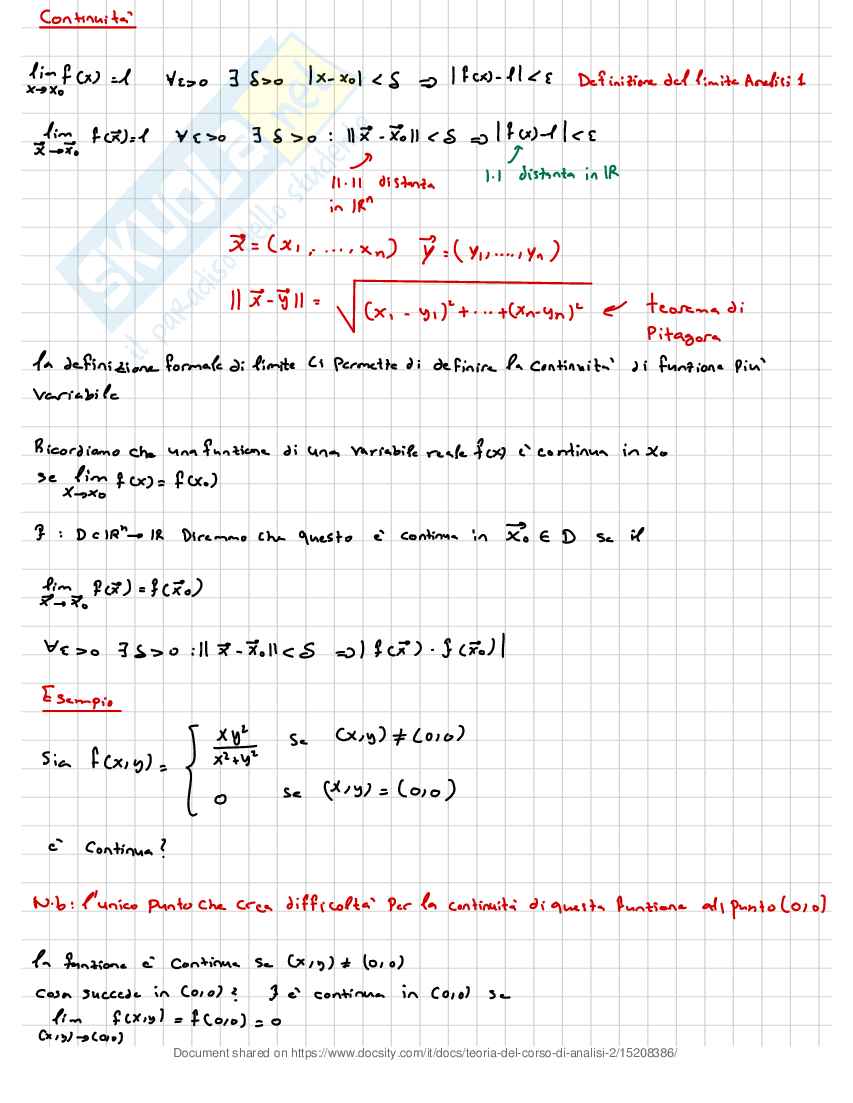 Continuità
lim f(x) = l ∀ε>0 ∃ δ>0 |x-x₀| < δ ⇒ |f(x)-l| < ε Definizione del limite Analisi 1
x→x₀
lim f(x⃗)=l ∀ε>0 ∃ δ>0 : ||x⃗-x⃗₀|| < δ ⇒ |f(x)-l| < ε
x⃗→x⃗₀
||·|| distanza
in ℝⁿ
|·| distanza in ℝ
x⃗ = (x₁, ..., xₙ) y⃗ = (y₁, ...., yₙ)
||x⃗-y⃗|| = √((x₁-y₁)²+...+(xₙ-yₙ)²) ← teorema di
Pitagora
la definizione formale di limite ci permette di definire la continuità di funzione più
variabile
Ricordiamo che una funzione di una variabile reale f(x) è continua in x₀
se lim f(x) = f(x₀)
x→x₀
f : D⊂ℝⁿ→ℝ Diremmo che questo è continua in x⃗₀ ∈ D se il
lim f(x⃗) = f(x⃗₀)
x⃗→x⃗₀
∀ε>0 ∃δ>0 : ||x⃗-x⃗₀|| < δ ⇒ |f(x⃗) - f(x⃗₀)|
Esempio
Sia f(x,y) = { xy²/(x²+y²) se (x,y) ≠ (0,0)
0 se (x,y) = (0,0)
è Continua?
N.b: l'unico punto che crea difficoltà per la continuità di questa funzione è il punto (0,0)
la funzione è continua se (x,y) ≠ (0,0)
Cosa succede in (0,0)? f è continua in (0,0) se
lim f(x,y) = f(0,0) = 0
(x,y)→(0,0)
SKUOLA.net
il paradiso dello studente
Document shared on https://www.docsity.com/it/docs/teoria-del-corso-di-analisi-2/15208386/